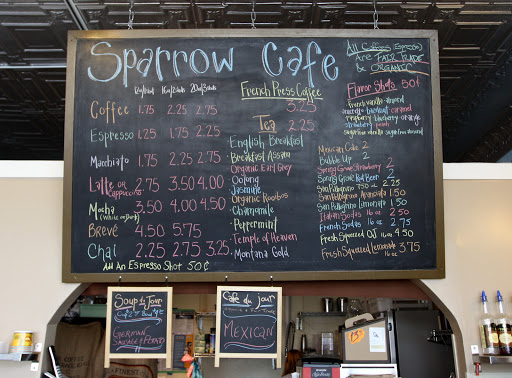 Sparrow Cafe
All Coffees (Espresso)
Are FAIR TRADE
& ORGANIC
Coffee 1.75 2.25 2.75
Espresso 1.25 1.75 2.25
Macchiato 1.75 2.25 2.75
Latte or Cappuccino 2.75 3.50 4.00
Mocha 3.50 4.00 4.50
(White or Dark)
Brevé 4.50 5.75
Chai 2.25 2.75 3.25
Add An Espresso Shot 50¢
French Press Coffee
3.25
Tea 2.25
English Breakfast
Breakfast Assam
Organic Earl Grey
Oolong
Jasmine
Organic Rooibos
Chamomile
Peppermint
Temple of Heaven
Montana Gold
Flavor Shots 50¢
Mexican Coke 2
Bubble Up 2
Spring Grove Strawberry 2
Spring Grove Root Beer 2
San Pellegrino 750 2.75
San Pellegrino Aranciata 1.50
San Pellegrino Limonata 1.50
Italian Sodas 16oz 2.50
French Sodas 16oz 2.75
Fresh Squeezed OJ 16oz 4.50
Fresh Squeezed Lemonade 16oz 3.75
Soup du Jour
German
Sausage & Potato
Cafe du jour
Mexican